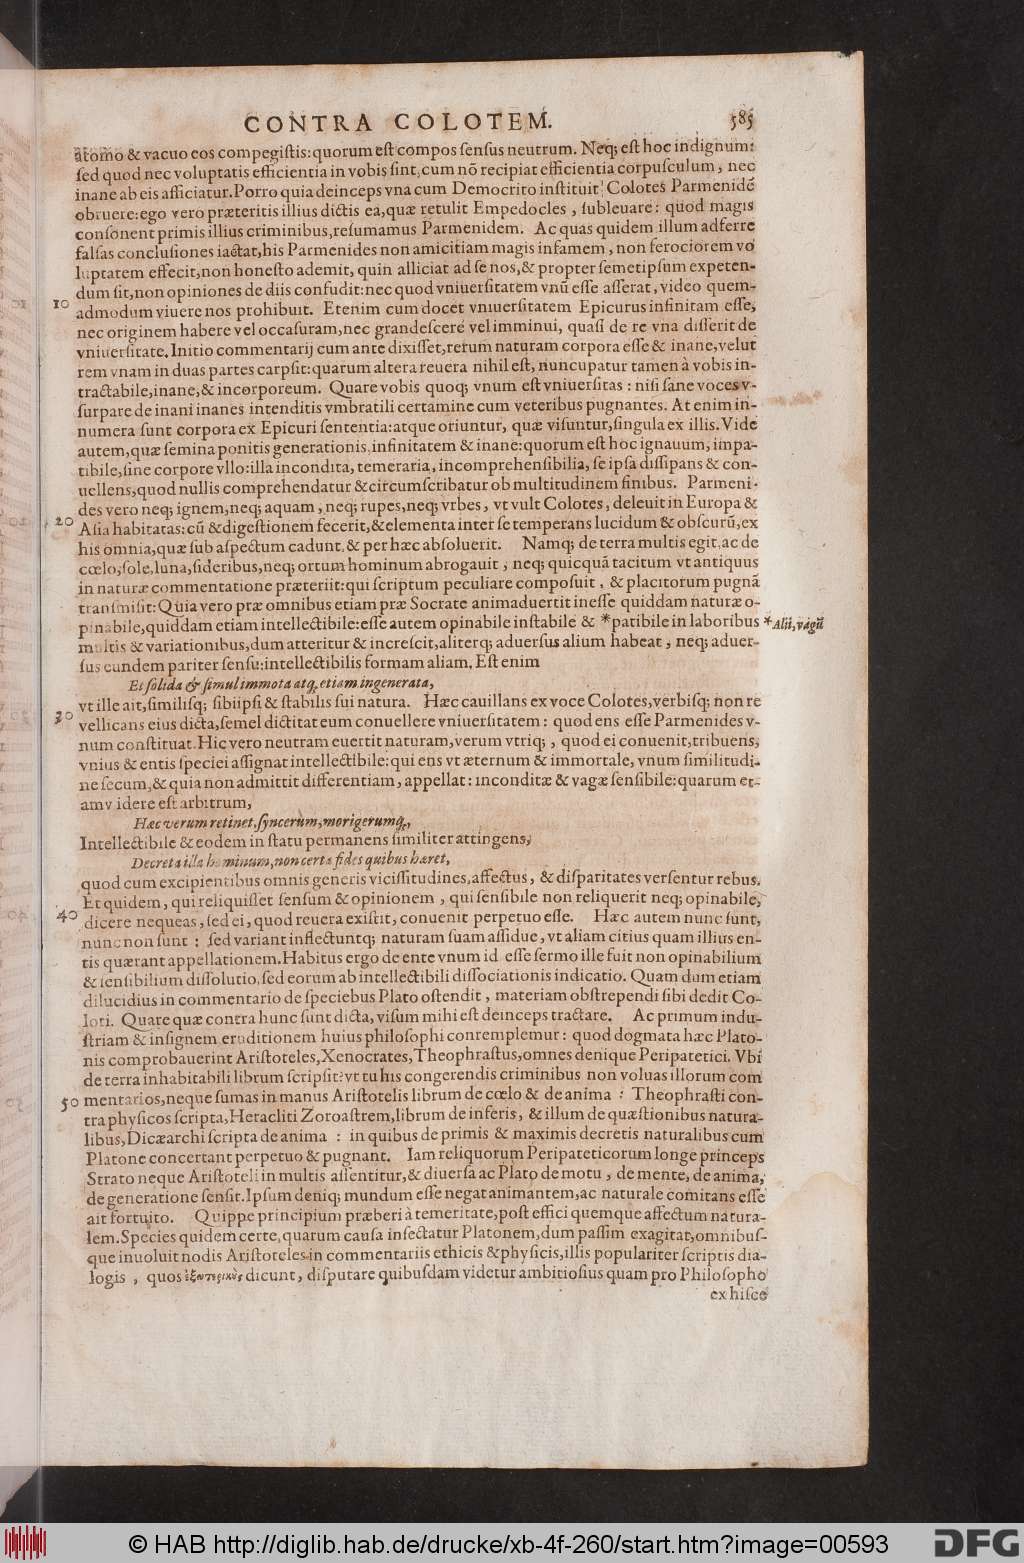 CONTRA COLOTEM. 585
atomo & vacuo eos compegistis: quorum est compos sensus neutrum. Neq; est hoc indignum:
sed quod nec voluptatis efficientia in vobis sint, cum nõ recipiat efficientia corpusculum, nec
inane ab eis afficiatur. Porro quia deinceps vna cum Democrito instituit Colotes Parmenidẽ
obruere: ego vero præteritis illius dictis ea, quæ retulit Empedocles, subleuare: quod magis
consonent primis illius criminibus, resumamus Parmenidem. Ac quas quidem illum adferre
falsas conclusiones iactat, his Parmenides non amicitiam magis infamem, non ferociorem vo
luptatem effecit, non honesto ademit, quin alliciat ad se nos, & propter semetipsum expeten-
dum sit, non opiniones de diis confudit: nec quod vniuersitatem vnũ esse asserat, video quem-
10 admodum viuere nos prohibuit. Etenim cum docet vniuersitatem Epicurus infinitam esse,
nec originem habere vel occasuram, nec grandescere vel imminui, quasi de re vna disserit de
vniuersitate. Initio commentarij cum ante dixisset, rerum naturam corpora esse & inane, velut
rem vnam in duas partes carpsit: quarum altera reuera nihil est, nuncupatur tamen à vobis in-
tractabile, inane, & incorporeum. Quare vobis quoq; vnum est vniuersitas: nisi sane voces v-
surpare de inani inanes intenditis vmbratili certamine cum veteribus pugnantes. At enim in-
numera sunt corpora ex Epicuri sententia: atque oriuntur, quæ visuntur, singula ex illis. Vide
autem, quæ semina ponitis generationis, infinitatem & inane: quorum est hoc ignauum, impa-
tibile, sine corpore vllo: illa incondita, temeraria, incomprehensibilia, se ipsa dissipans & con-
uellens, quod nullis comprehendatur & circumscribatur ob multitudinem finibus. Parmeni-
des vero neq; ignem, neq; aquam, neq; rupes, neq; vrbes, vt vult Colotes, deleuit in Europa &
20 Asia habitatas: cũ & digestionem fecerit, & elementa inter se temperans lucidum & obscurũ, ex
his omnia, quæ sub aspectum cadunt, & per hæc absoluerit. Namq; de terra multis egit, ac de
cœlo, sole, luna, sideribus, neq; ortum hominum abrogauit, neq; quicquã tacitum vt antiquus
in naturæ commentatione præteriit: qui scriptum peculiare composuit, & placitorum pugnã
transmisit: Quia vero præ omnibus etiam præ Socrate animaduertit inesse quiddam naturæ o-
pinabile, quiddam etiam intellectibile: esse autem opinabile instabile & *patibile in laboribus *Alii, vagũ
multis & variationibus, dum atteritur & increscit, aliterq; aduersus alium habeat, neq; aduer-
sus eundem pariter sensu: intellectibilis formam aliam, Est enim
Et solida & simul immota atq, etiam ingenerata,
vt ille ait, similisq; sibiipsi & stabilis sui natura. Hæc cauillans ex voce Colotes, verbisq; non re
30 vellicans eius dicta, semel dictitat eum conuellere vniuersitatem: quod ens esse Parmenides v-
num constituat. Hic vero neutram euertit naturam, verum vtriq;, quod ei conuenit, tribuens,
vnius & entis speciei assignat intellectibile: qui ens vt æternum & immortale, vnum similitudi-
ne secum, & quia non admittit differentiam, appellat: inconditæ & vagæ sensibile: quarum et-
am videre est arbitrum,
Hæc verum retinet, syncerum, morigerumq,,
Intellectibile & eodem in statu permanens similiter attingens,
Decreta illa hominum, non certa fides quibus hæret,
quod cum excipientibus omnis generis vicissitudines, affectus, & disparitates versentur rebus.
Et quidem, qui reliquisset sensum & opinionem, qui sensibile non reliquerit neq; opinabile,
40 dicere nequeas, sed ei, quod reuera existit, conuenit perpetuo esse. Hæc autem nunc sunt,
nunc non sunt: sed variant inflectuntq; naturam suam assidue, vt aliam citius quam illius en-
tis quærant appellationem. Habitus ergo de ente vnum id esse sermo ille fuit non opinabilium
& sensibilium dissolutio, sed eorum ab intellectibili dissociationis indicatio. Quam dum etiam
dilucidius in commentario de speciebus Plato ostendit, materiam obstrependi sibi dedit Co-
loti. Quare quæ contra hunc sunt dicta, visum mihi est deinceps tractare. Ac primum indu-
striam & insignem eruditionem huius philosophi contemplemur: quod dogmata hæc Plato-
nis comprobauerint Aristoteles, Xenocrates, Theophrastus, omnes denique Peripatetici. Vbi
de terra inhabitabili librum scripsit? vt tu his congerendis criminibus non voluas illorum com
50 mentarios, neque sumas in manus Aristotelis librum de cœlo & de anima: Theophrasti con-
tra physicos scripta, Heracliti Zoroastrem, librum de inferis, & illum de quæstionibus natura-
libus, Dicæarchi scripta de anima: in quibus de primis & maximis decretis naturalibus cum
Platone concertant perpetuo & pugnant. Iam reliquorum Peripateticorum longe princeps
Strato neque Aristoteli in multis assentitur, & diuersa ac Plato de motu, de mente, de anima,
de generatione sensit. Ipsum deniq; mundum esse negat animantem, ac naturale comitans esse
ait fortuito. Quippe principium præberi à temeritate, post effici quemque affectum natura-
lem. Species quidem certe, quarum causa insectatur Platonem, dum passim exagitat, omnibus-
que inuoluit nodis Aristoteles in commentariis ethicis & physicis, illis populariter scriptis dia-
logis, quos ἐξωτερικὰς dicunt, disputare quibusdam videtur ambitiosius quam pro Philosopho
ex hisce
© HAB http://diglib.hab.de/drucke/xb-4f-260/start.htm?image=00593
DFG